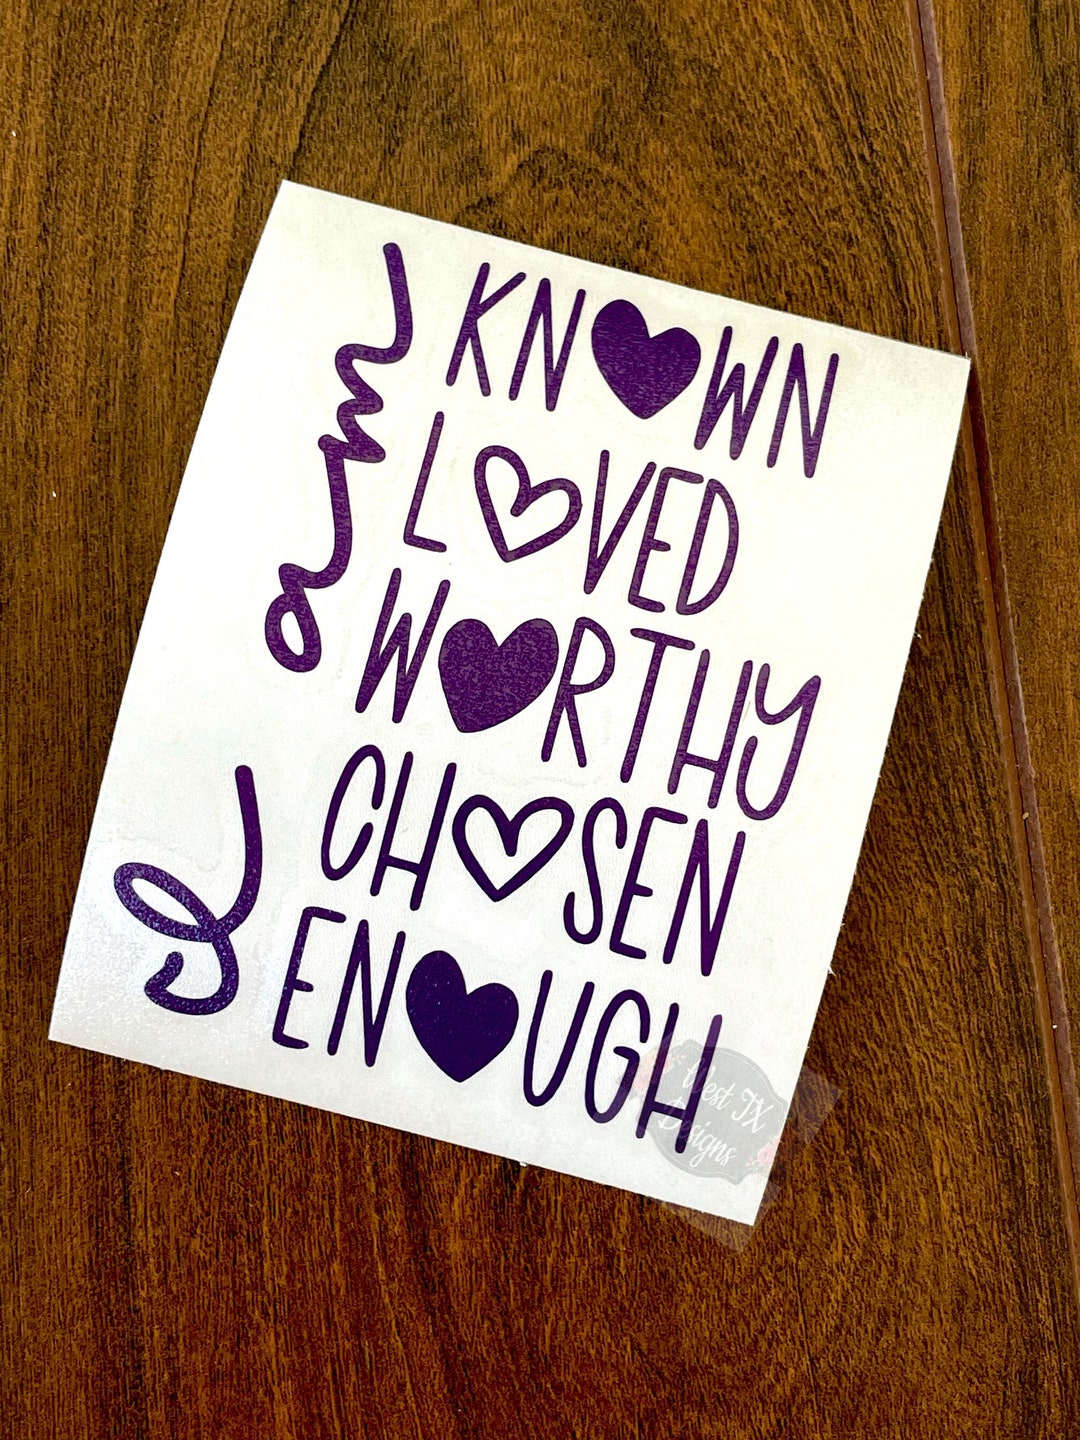 I am
KNOWN
LOVED
WORTHY
CHOSEN
ENOUGH
West TX
Designs